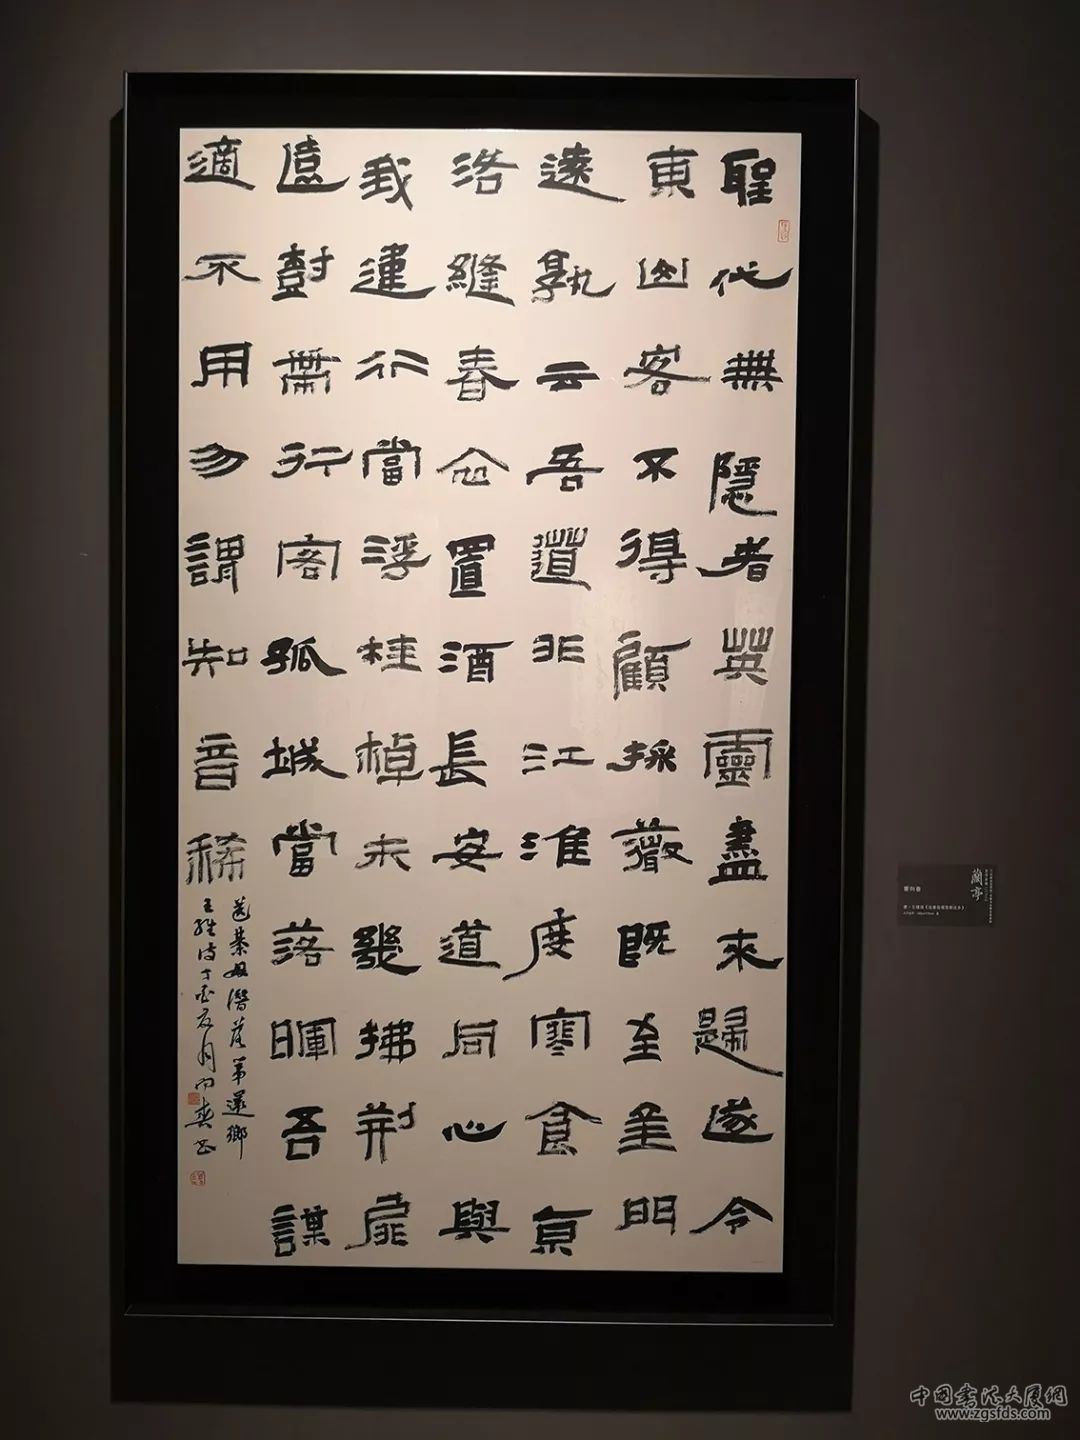 聖代無隱者英靈盡來歸遂令
東山客不得顧採薇既至金門
遠孰云吾道非江淮度寒食京
洛縫春衣置酒長安道同心與
我違行當浮桂棹未幾拂荊扉
遠樹帶行客孤城當落暉吾謀
適不用勿謂知音稀
送綦毋潛落第還鄉
王維詩丁酉夏月向春書
蘭亭
中國書法大廈網
www.zgsfds.com